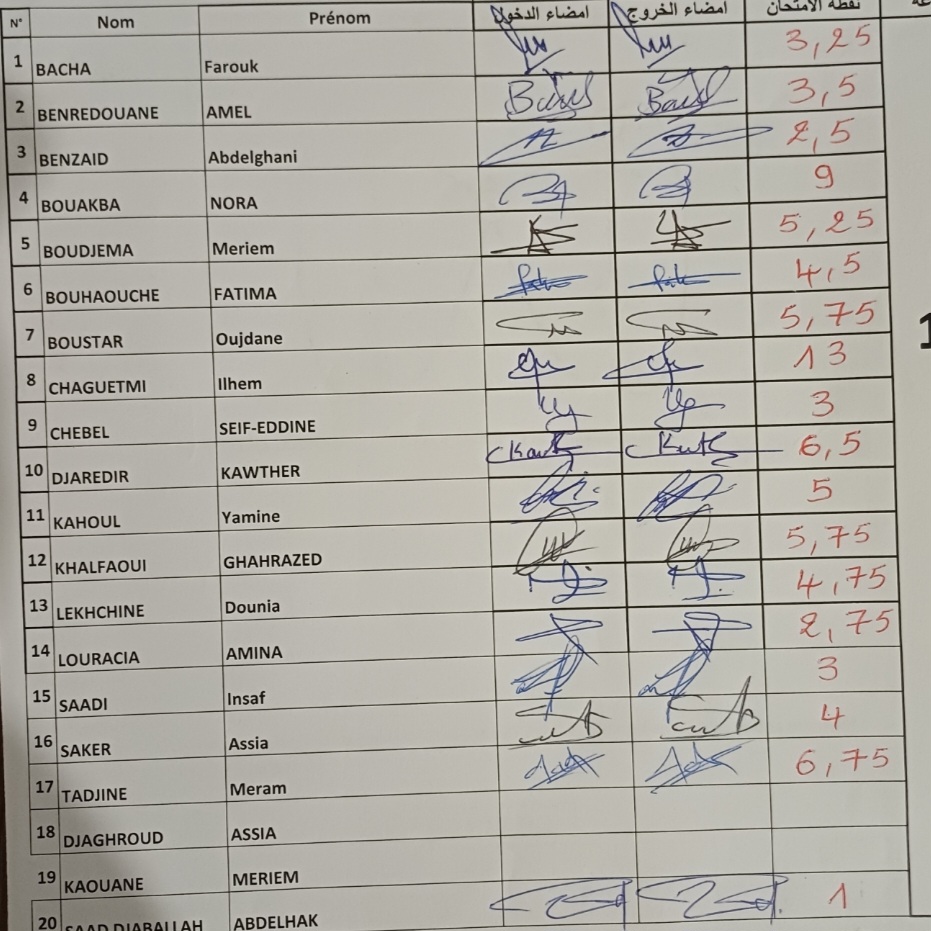 N° Nom Prénom امضاء الدخول امضاء الخروج نقطة الامتحان
1 BACHA Farouk 3,25
2 BENREDOUANE AMEL 3,5
3 BENZAID Abdelghani 2,5
4 BOUAKBA NORA 9
5 BOUDJEMA Meriem 5,25
6 BOUHAOUCHE FATIMA 4,5
7 BOUSTAR Oujdane 5,75
8 CHAGUETMI Ilhem 13
9 CHEBEL SEIF-EDDINE 3
10 DJAREDIR KAWTHER 6,5
11 KAHOUL Yamine 5
12 KHALFAOUI GHAHRAZED 5,75
13 LEKHCHINE Dounia 4,75
14 LOURACIA AMINA 2,75
15 SAADI Insaf 3
16 SAKER Assia 4
17 TADJINE Meram 6,75
18 DJAGHROUD ASSIA
19 KAOUANE MERIEM
20 SAAD DJABALLAH ABDELHAK 1